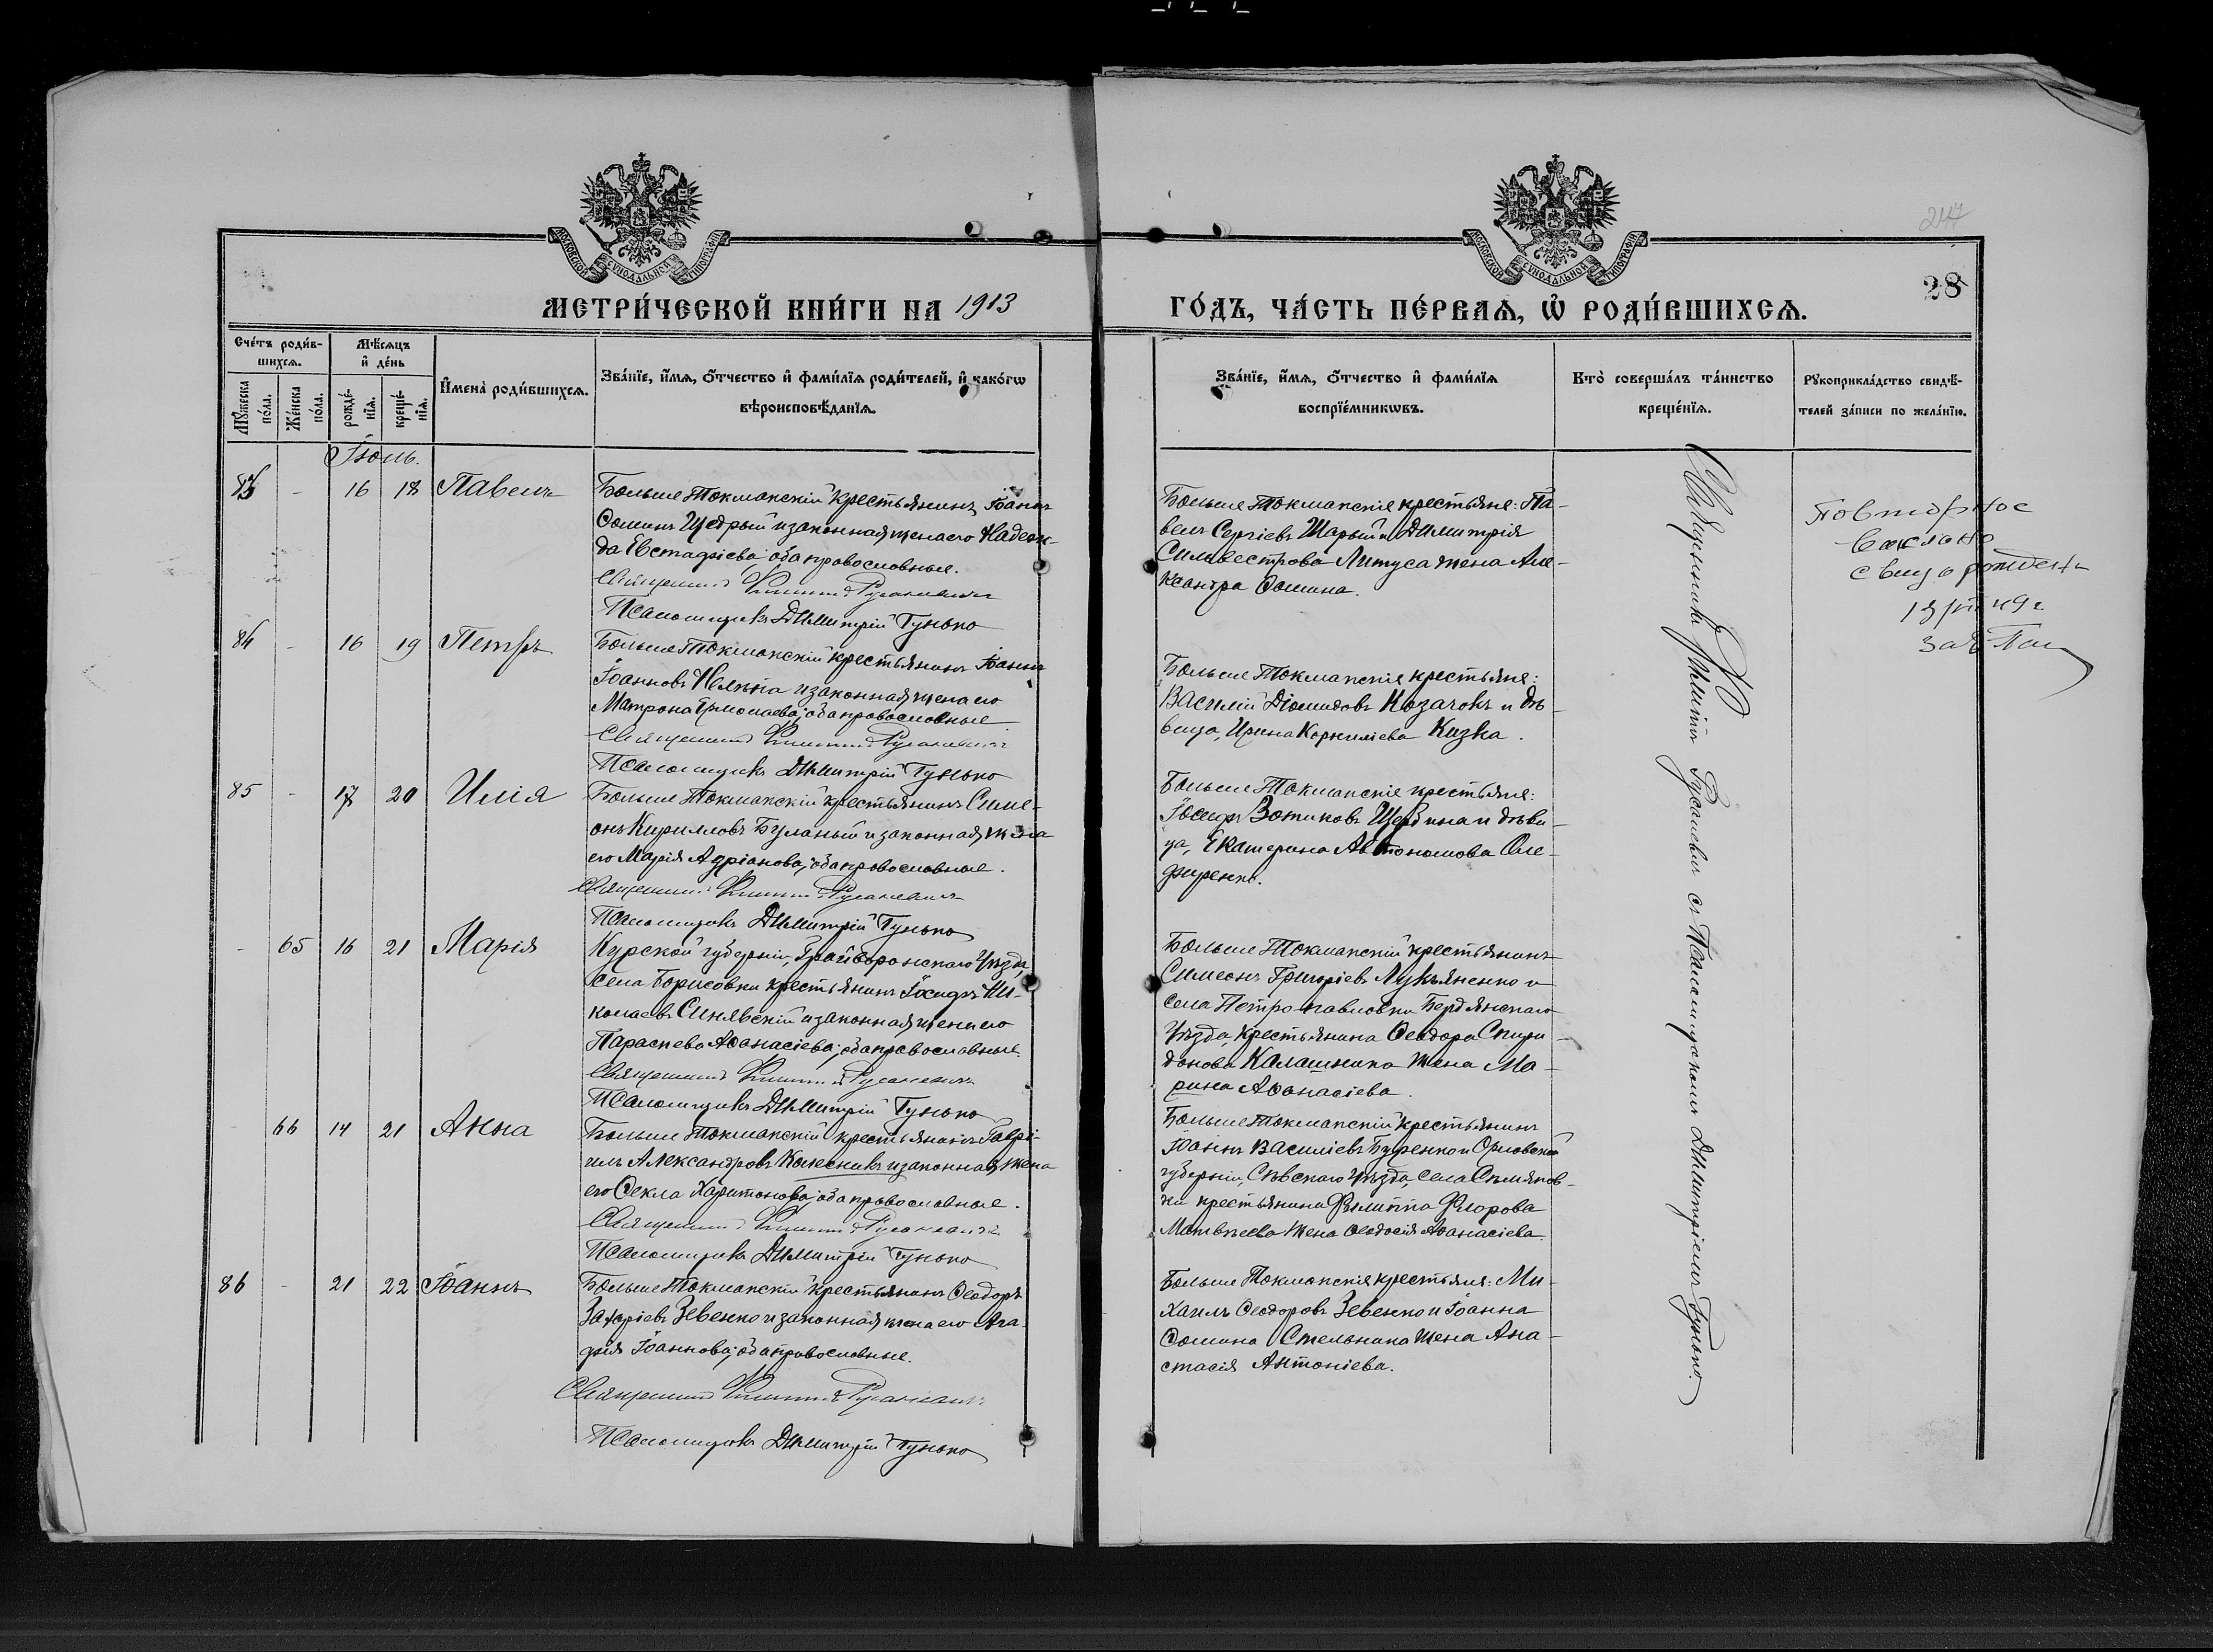 МОСКОВСКОЙ СѴНОДАЛЬНОЙ ТИПОГРАФІИ
МОСКОВСКОЙ СѴНОДАЛЬНОЙ ТИПОГРАФІИ
28
МЕТРИ́ЧЕСКОЙ КНИ́ГИ НА 1913
ГО́ДЪ, ЧА́СТЬ ПЕ́РВАѦ, Ѡ҆ РОДИ́ВШИХСѦ.
Сче́тъ роди́в-
шихсѧ.
Мꙋ́жеска
по́ла.
Же́нска
по́ла.
Мѣ́сѧцъ
и҆ де́нь
рожде́-
нїѧ.
креще́-
нїѧ.
И҆мена̀ роди́вшихсѧ.
Зва́нїе, и҆́мѧ, ѻ҆́тчество и҆ фами́лїѧ роди́телей, и҆ како́гѡ
вѣроисповѣ́данїѧ.
Зва́нїе, и҆́мѧ, ѻ҆́тчество и҆ фами́лїѧ
воспрїе́мникѡвъ.
Кто̀ соверша́лъ та́инство
креще́нїѧ.
Рꙋкоприкла́дство свидѣ́-
телей за́писи по жела́нїю.
Іюль.
83 - 16 18 Павелъ
Больше Токмакскій крестьянинъ Іоаннъ
Ѳоминъ Щедрый и законная жена его Надеж-
да Евстафіева; оба православные.
Священникъ Русаневичъ
Псаломщикъ Димитрій Гунько
Больше Токмакскіе крестьяне: Па-
велъ Сергіевъ Шарый и Димитрія
Сильвестрова Литуса жена Але-
ксандра Ѳомина.
Повторное
свид о рожден
84 - 16 19 Петръ
Больше Токмакскій крестьянинъ Іоаннъ
Іоанновъ и законная жена его
Матрона Ермолаева; оба православные
Священникъ Русаневичъ
Псаломщикъ Димитрій Гунько
Больше Токмакскіе крестьяне:
Василій Діомидовъ Козачокъ и дѣ-
вица, Ирина Корниліева Кизка.
85 - 17 20 Илія
Больше Токмакскій крестьянинъ Симе-
онъ Кирилловъ Буланый и законная жена
его Марія Адріанова; оба православные.
Священникъ Русаневичъ
Псаломщикъ Димитрій Гунько
Больше Токмакскіе крестьяне:
Іосифъ Зотиковъ Щербина и дѣви-
ца, Екатерина Автономова Оле-
фиренко.
- 65 16 21 Марія
Курской губерніи, Грайворонскаго Уѣзда,
села Борисовки крестьянинъ Іосифъ Ни-
колаевъ Синявскій и законная жена его
Параскева Аѳанасіева; оба православные.
Священникъ Русаневичъ
Псаломщикъ Димитрій Гунько
Больше Токмакскій крестьянинъ
Симеонъ Григоріевъ Лукьяненко и
села Петро-павловки Бердянскаго
Уѣзда, крестьянина Ѳеодора Спири-
донова Калашника жена Ма-
рина Аѳанасіева.
- 66 14 21 Анна
Больше Токмакскій крестьянинъ Гаврі-
илъ Александровъ Колесникъ и законная жена
его Ѳекла Харитонова; оба православные.
Священникъ Русаневичъ
Псаломщикъ Димитрій Гунько
Больше Токмакскій крестьянинъ
Іоаннъ Василіевъ Буренко и Орловской
губерніи, Сѣвскаго Уѣзда, села
крестьянина Филиппа Флорова
Матвѣева жена Ѳеодосія Аѳанасіева.
86 - 21 22 Іоаннъ
Больше Токмакскій крестьянинъ Ѳеодоръ
Захаріевъ Зевенко и законная жена его Ага-
фія Іоаннова; оба православные.
Священникъ Русаневичъ
Псаломщикъ Димитрій Гунько
Больше Токмакскіе крестьяне: Ми-
хаилъ Ѳеодоровъ Зевенко и Іоанна
Ѳомина Стельника жена Ана-
стасія Антоніева.
Священникъ Русаневичъ съ Псаломщикомъ Димитріемъ Гунько.